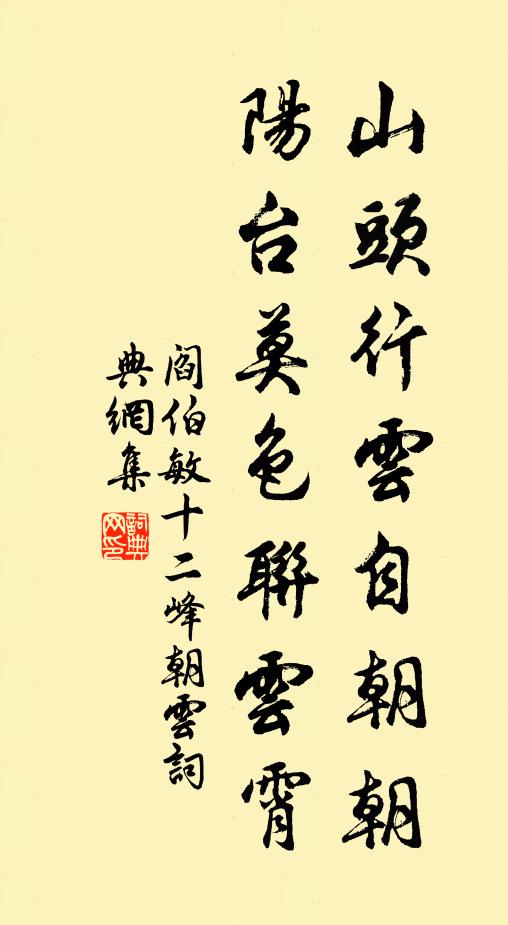 山頭行雲自朝朝
陽台莫色聯雲霄
閻伯敏十二峰朝雲詞
典網集
詞典網印